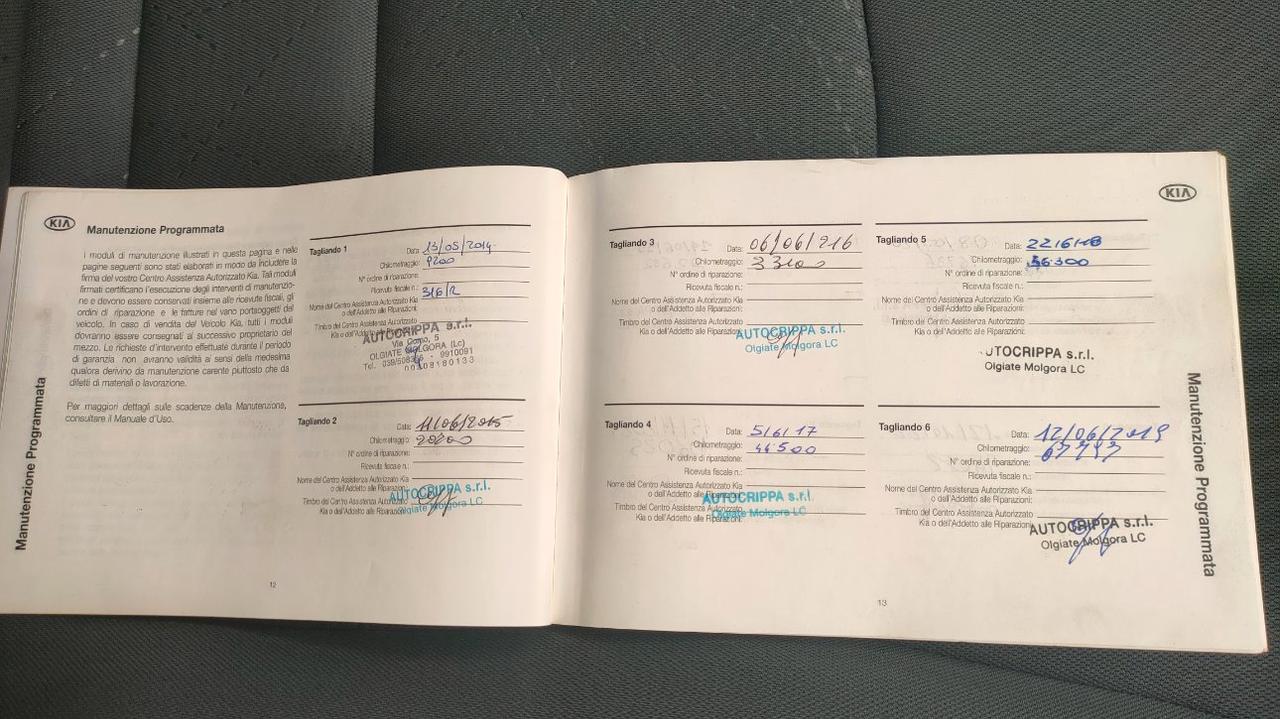 KIA
Manutenzione Programmata
I moduli di manutenzione illustrati in questa pagina e nelle
pagine seguenti sono stati elaborati in modo da includere la
firma del vostro Centro Assistenza Autorizzato Kia. Tali moduli
firmati certificano l'esecuzione degli interventi di manutenzio-
ne e devono essere conservati insieme alle ricevute fiscali, gli
ordini di riparazione e le fatture nel vano portaoggetti del
veicolo. In caso di vendita del Veicolo Kia, tutti i moduli
dovranno essere consegnati al successivo proprietario del
mezzo. Le richieste d'intervento effettuate durante il periodo
di garanzia non avranno validità ai sensi della medesima
qualora derivino da manutenzione carente piuttosto che da
difetti di materiali o lavorazione.
Per maggiori dettagli sulle scadenze della Manutenzione,
consultare il Manuale d'Uso.
Manutenzione Programmata
Tagliando 1
Data: 13/05/2014
Chilometraggio: 9200
N° ordine di riparazione:
Ricevuta fiscale n.: 316/R
Nome del Centro Assistenza Autorizzato Kia
o dell'Addetto alle Riparazioni:
Timbro del Centro Assistenza Autorizzato
Kia o dell'Addetto alle Riparazioni:
AUTOCRIPPA s.r.l.
Via Como, 5
OLGIATE MOLGORA (Lc)
Tel. - 9910091
Tagliando 2
Data: 11/06/2015
Chilometraggio:
N° ordine di riparazione:
Ricevuta fiscale n.:
Nome del Centro Assistenza Autorizzato Kia
o dell'Addetto alle Riparazioni:
Timbro del Centro Assistenza Autorizzato
Kia o dell'Addetto alle Riparazioni:
AUTOCRIPPA s.r.l.
Olgiate Molgora LC
12
KIA
Tagliando 3
Data: 06/06/216
Chilometraggio: 33100
N° ordine di riparazione:
Ricevuta fiscale n.:
Nome del Centro Assistenza Autorizzato Kia
o dell'Addetto alle Riparazioni:
Timbro del Centro Assistenza Autorizzato
Kia o dell'Addetto alle Riparazioni:
AUTOCRIPPA s.r.l.
Olgiate Molgora LC
Tagliando 4
Data: 5/6/17
Chilometraggio: 44500
N° ordine di riparazione:
Ricevuta fiscale n.:
Nome del Centro Assistenza Autorizzato Kia
o dell'Addetto alle Riparazioni:
Timbro del Centro Assistenza Autorizzato
Kia o dell'Addetto alle Riparazioni:
AUTOCRIPPA s.r.l.
Olgiate Molgora LC
Tagliando 5
Data: 22.6.18
Chilometraggio: 56.300
N° ordine di riparazione:
Ricevuta fiscale n.:
Nome del Centro Assistenza Autorizzato Kia
o dell'Addetto alle Riparazioni:
Timbro del Centro Assistenza Autorizzato
Kia o dell'Addetto alle Riparazioni:
UTOCRIPPA s.r.l.
Olgiate Molgora LC
Tagliando 6
Data: 12/06/2019
Chilometraggio:
N° ordine di riparazione:
Ricevuta fiscale n.:
Nome del Centro Assistenza Autorizzato Kia
o dell'Addetto alle Riparazioni:
Timbro del Centro Assistenza Autorizzato
Kia o dell'Addetto alle Riparazioni:
AUTOCRIPPA s.r.l.
Olgiate Molgora LC
Manutenzione Programmata
13